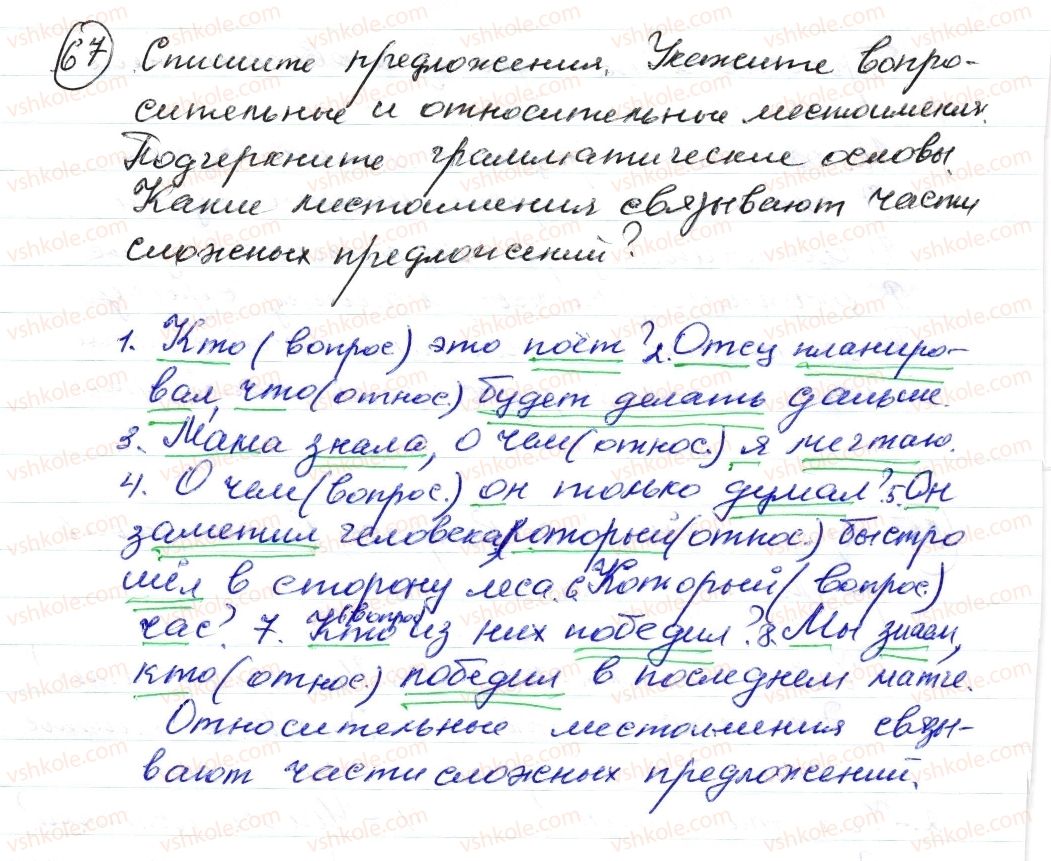 67 Спишите предложения. Укажите вопро-
сительные и относительные местоимения.
Подчеркните грамматические основы
Какие местоимения связывают части
сложных предложений?
1. Кто (вопрос) это поёт? 2. Отец планиро-
вал, что (относ.) будет делать дальше.
3. Мама знала, о чем (относ.) я мечтаю.
4. О чем (вопрос.) он только думал? 5. Он
заметил человека, который (относ.) быстро
шёл в сторону леса. 6. Который (вопрос.)
час? 7. Кто (вопрос) из них победил? 8. Мы знаем,
кто (относ.) победил в последнем матче.
Относительные местоимения связы-
вают части сложных предложений.